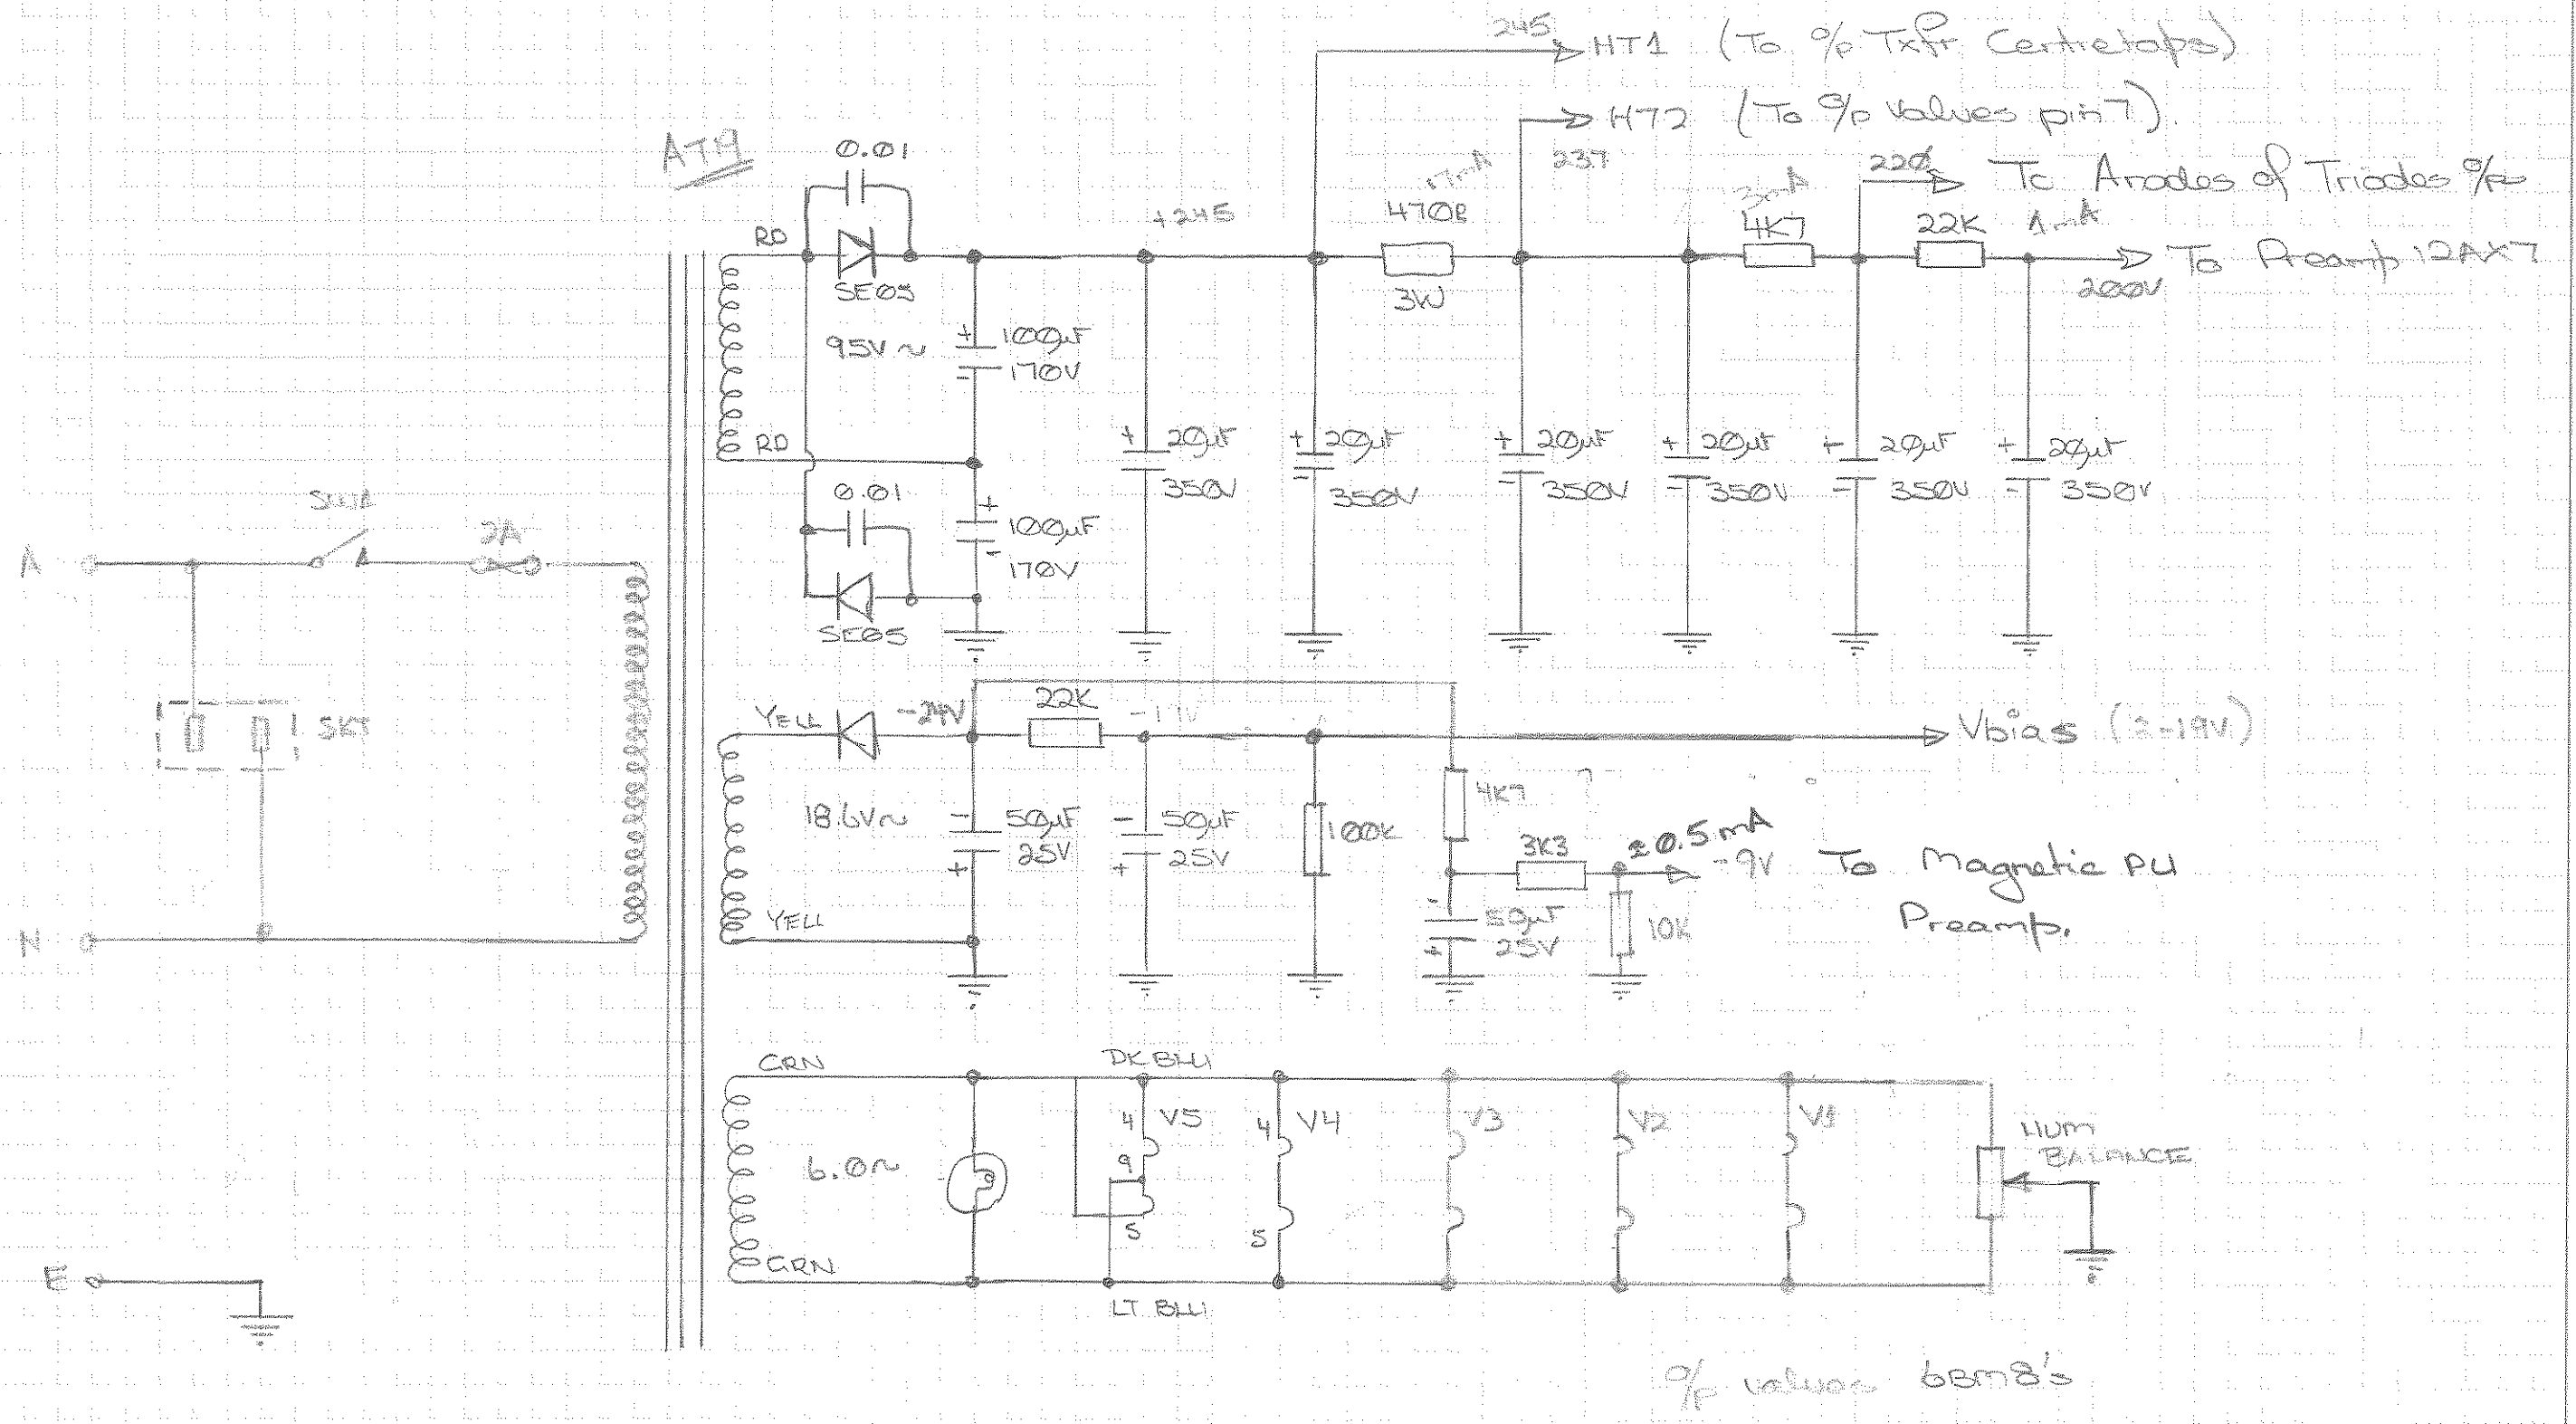 245 HT1 (To o/p Txfr Centretaps)
HT2 (To o/p valves pin 7).
237
AT19
0.01
RD
SE05
+245
17mA
470R
3W
3mA
4K7
220
To Anodes of Triodes o/p
22K
1mA
To Preamp 12AX7
200V
95V~
+ 100µF
- 170V
RD
+ 20µF
- 350V
+ 20µF
- 350V
+ 20µF
- 350V
+ 20µF
- 350V
+ 20µF
- 350V
+ 20µF
- 350V
0.01
+ 100µF
- 170V
SE05
A
SW1A
2A
SKT
N
E
YELL
-24V
22K
Vbias (≈-19V)
18.6V~
- 50µF
+ 25V
- 50µF
+ 25V
100K
4K7
3K3
±0.5mA
-9V
To Magnetic PU
Preamp.
- 50µF
+ 25V
10K
YELL
GRN
DK BLU
4 V5
9
5
4 V4
5
V3
V2
V1
HUM
BALANCE
6.0~
GRN
LT BLU
o/p valves 6BM8's